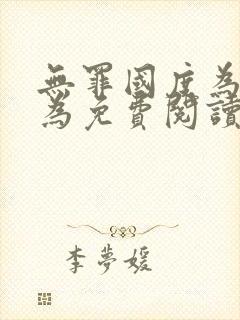 無罪國度為
為免費閱讀
李夢媛